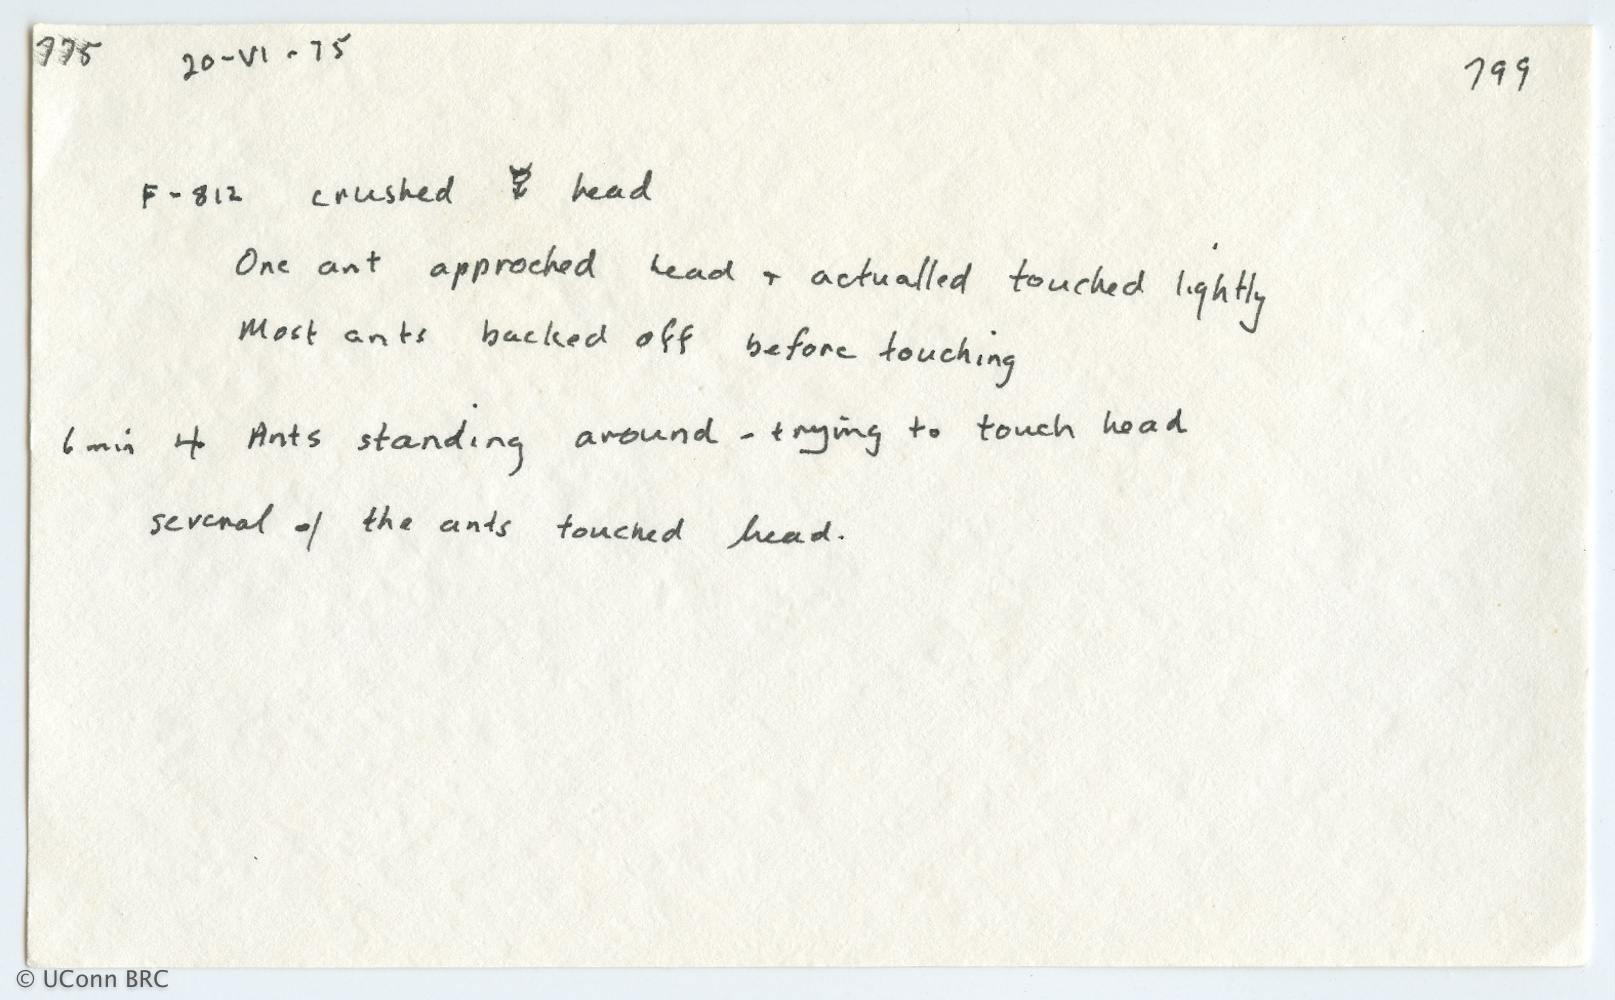 775 20-VI-75 799
F-812 crushed ☿ head
One ant approched head + actualled touched lightly
Most ants backed off before touching
6 min 4 Ants standing around - trying to touch head
several of the ants touched head.
© UConn BRC